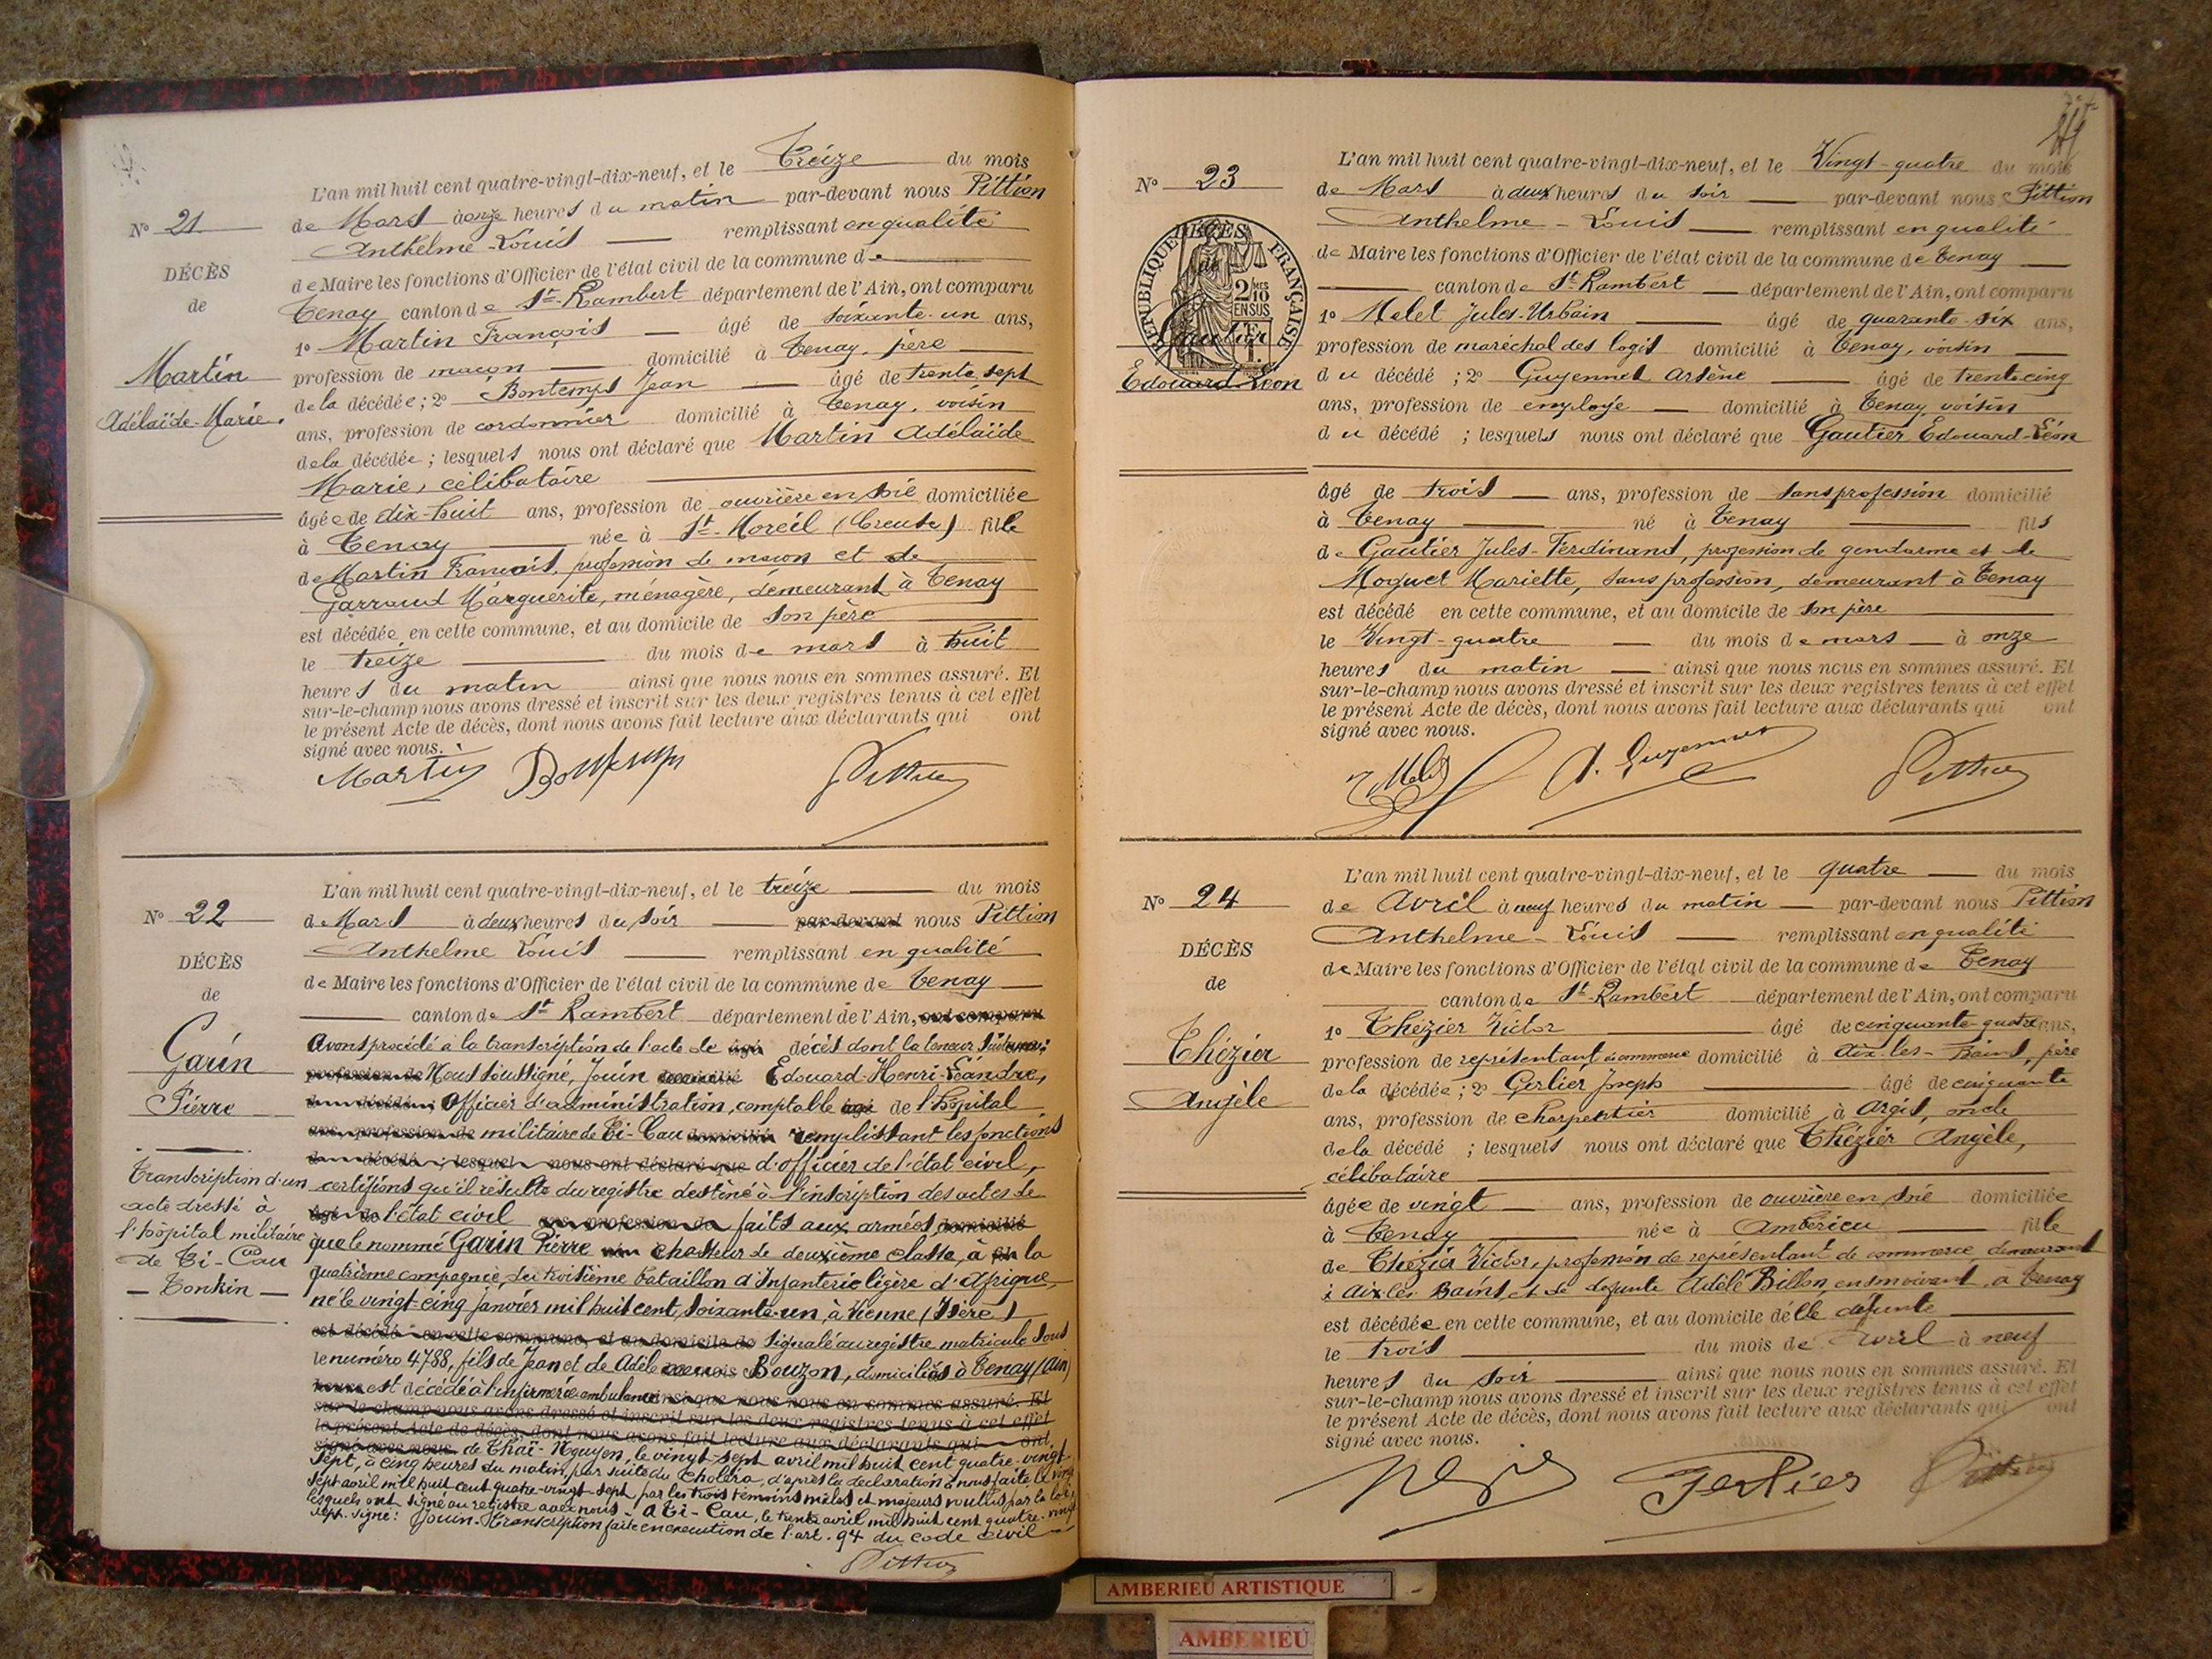 L'an mil huit cent quatre-vingt-dix-neuf, et le Treize du mois
de Mars à onze heures du matin par-devant nous Pittion
Anthelme-Louis remplissant en qualité
de Maire les fonctions d'Officier de l'état civil de la commune de
Tenay canton de St-Rambert département de l'Ain, ont comparu
1o Martin François âgé de soixante-un ans,
profession de maçon domicilié à Tenay, père
de la décédée; 2o Bontemps Jean âgé de trente sept
ans, profession de cordonnier domicilié à Tenay, voisin
de la décédée; lesquels nous ont déclaré que Martin Adélaïde
Marie, célibataire
âgée de dix-huit ans, profession de ouvrière en soie domiciliée
à Tenay née à St-Moreil (Creuse) fille
de Martin François, profession de maçon et de
Garraud Marguerite, ménagère, demeurant à Tenay
est décédée en cette commune, et au domicile de son père
le treize du mois de mars à huit
heures du matin ainsi que nous nous en sommes assuré. Et
sur-le-champ nous avons dressé et inscrit sur les deux registres tenus à cet effet
le présent Acte de décès, dont nous avons fait lecture aux déclarants qui ont
signé avec nous.
Martin Bontemps Pittion
No 21
DÉCÈS
de
Martin
Adélaïde-Marie.
L'an mil huit cent quatre-vingt-dix-neuf, et le treize du mois
de Mars à deux heures du soir par-devant nous Pittion
Anthelme Louis remplissant en qualité
de Maire les fonctions d'Officier de l'état civil de la commune de Tenay
canton de St Rambert département de l'Ain, ont comparu
Avons procédé à la transcription de l'acte de âgé décès dont la teneur suit:
profession de Nous soussigné, Jouin domicilié Edouard-Henri-Léandre,
Officier d'administration, comptable âgé de l'hôpital
ans, profession de militaire de Ti-Cau domicilié remplissant les fonctions
d décédé; lesquels nous ont déclaré que d'officier de l'état civil,
certifions qu'il résulte du registre destiné à l'inscription des actes de
âgé de l'état civil ans, profession de faits aux armées, domicilié
que le nommé Garin Pierre chasseur de deuxième classe, à la
quatrième compagnie, du troisième bataillon d'Infanterie légère d'Afrique,
né le vingt-cinq Janvier mil huit cent soixante-un, à Vienne (Isère)
est décédé en cette commune, et au domicile de signalé au registre matricule sous
le numéro 4788, fils de Jean et de Adèle Bouzon, domiciliés à Tenay (Ain)
heure est décédé à l'infirmerie-ambulance ainsi que nous nous en sommes assuré. Et
sur-le-champ nous avons dressé et inscrit sur les deux registres tenus à cet effet
le présent Acte de décès, dont nous avons fait lecture aux déclarants qui ont
signé avec nous. de Thaï-Nguyen, le vingt-sept avril mil huit cent quatre-vingt
sept, à cinq heures du matin, par suite du Choléra, d'après la déclaration à nous faite le vingt
sept avril mil huit cent quatre-vingt-sept par les trois témoins mâles et majeurs voulus par la loi,
lesquels ont signé au registre avec nous. A Ti-Cau, le trente avril mil huit cent quatre-vingt
sept. signé: Jouin. Transcription faite en exécution de l'art. 94 du code civil
Pittion
No 22
DÉCÈS
de
Garin
Pierre
Transcription d'un
acte dressé à
l'hôpital militaire
de Ti-Cau
- Tonkin -
L'an mil huit cent quatre-vingt-dix-neuf, et le Vingt-quatre du mois
de Mars à deux heures du soir par-devant nous Pittion
Anthelme-Louis remplissant en qualité
de Maire les fonctions d'Officier de l'état civil de la commune de Tenay
canton de St-Rambert département de l'Ain, ont comparu
1o Malet Jules-Urbain âgé de quarante-six ans,
profession de maréchal des logis domicilié à Tenay, voisin
du décédé; 2o Guyennet Arsène âgé de trente-cinq
ans, profession de employé domicilié à Tenay voisin
du décédé; lesquels nous ont déclaré que Gautier Edouard-Léon
âgé de trois ans, profession de sans profession domicilié
à Tenay né à Tenay fils
de Gautier Jules-Ferdinand, profession de gendarme et de
Moquet Mariette, sans profession, demeurant à Tenay
est décédé en cette commune, et au domicile de son père
le Vingt-quatre du mois de mars à onze
heures du matin ainsi que nous nous en sommes assuré. Et
sur-le-champ nous avons dressé et inscrit sur les deux registres tenus à cet effet
le présent Acte de décès, dont nous avons fait lecture aux déclarants qui ont
signé avec nous.
Malet A. Guyennet Pittion
No 23
DÉCÈS
de
RÉPUBLIQUE FRANÇAISE
2 MES
10
EN SUS
Gautier
Edouard Léon
L'an mil huit cent quatre-vingt-dix-neuf, et le quatre du mois
de Avril à neuf heures du matin par-devant nous Pittion
Anthelme-Louis remplissant en qualité
de Maire les fonctions d'Officier de l'état civil de la commune de Tenay
canton de St-Rambert département de l'Ain, ont comparu
1o Thézier Victor âgé de cinquante-quatre ans,
profession de représentant de commerce domicilié à Aix-les-Bains, père
de la décédée; 2o Gerlier Joseph âgé de cinquante
ans, profession de charpentier domicilié à Argis, oncle
de la décédé; lesquels nous ont déclaré que Thézier Angèle,
célibataire
âgée de vingt ans, profession de ouvrière en soie domiciliée
à Tenay née à Ambérieu fille
de Thézier Victor, profession de représentant de commerce demeurant
à Aix les Bains et de défunte Adèle Billon, en son vivant à Tenay
est décédée en cette commune, et au domicile de lle défunte
le trois du mois de Avril à neuf
heures du soir ainsi que nous nous en sommes assuré. Et
sur-le-champ nous avons dressé et inscrit sur les deux registres tenus à cet effet
le présent Acte de décès, dont nous avons fait lecture aux déclarants qui ont
signé avec nous.
Gerlier Pittion
No 24
DÉCÈS
de
Thézier
Angèle
AMBERIEU ARTISTIQUE
AMBERIEU